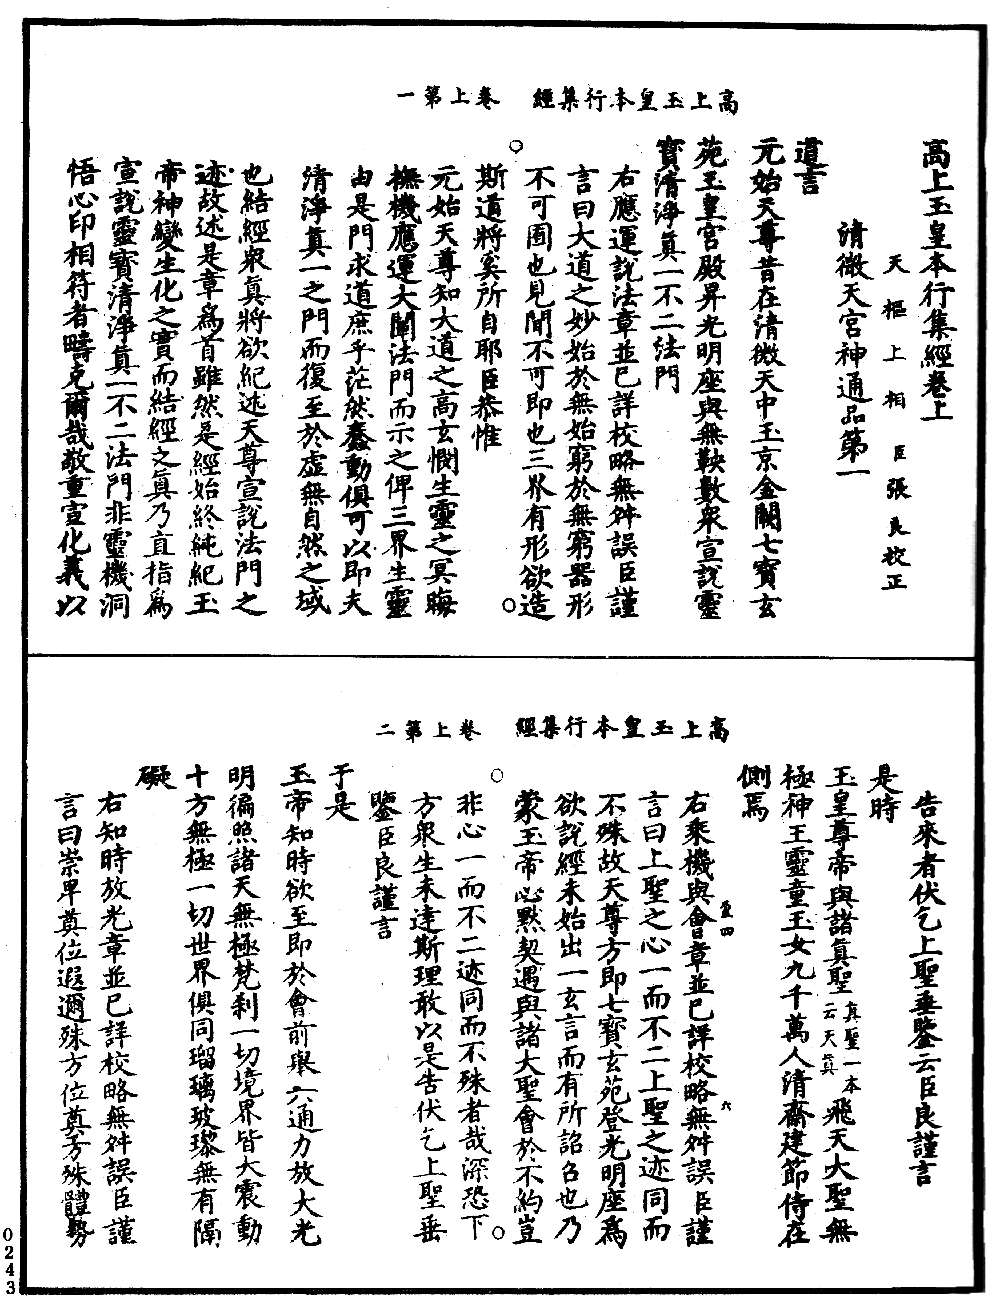 高上玉皇本行集經　卷上第一
高上玉皇本行集經卷上
天樞上相　臣張良校正
清微天宮神通品第一
道言
元始天尊昔在清微天中玉京金闕七寶玄
苑玉皇宮殿昇光明座與無鞅數衆宣說靈
寶清淨真一不二法門
右應運說法章並已詳校略無舛誤臣謹
言曰大道之妙始於無始窮於無窮器形
不可囿也見聞不可即也三界有形欲造
斯道將奚所自耶臣恭惟
元始天尊知大道之高玄憫生靈之冥晦
撫機應運大闡法門而示之俾三界生靈
由是門求道庶乎茫然蠢動俱可以即夫
清淨真一之門而復至於虛無自然之域
也結經衆真將欲紀述天尊宣說法門之
迹故述是章爲首雖然是經始終純紀玉
帝神變生化之實而結經之真乃直指爲
宣說靈寶清淨真一不二法門非靈機洞
悟心印相符者疇克爾哉敬重宣化義以
高上玉皇本行集經　卷上第二
告來者伏乞上聖垂鑒云臣良謹言
是時
玉皇尊帝與諸真聖真聖一本云天真飛天大聖無
極神王靈童玉女九千萬人清齋建節侍在
側焉
右乘機與會章並已詳校略無舛誤臣謹
言曰上聖之心一而不二上聖之迹同而
不殊故天尊方即七寶玄苑登光明座爲
欲說經未始出一玄言而有所詔召也乃
蒙玉帝心默契遇與諸大聖會於不約豈
非心一而不二迹同而不殊者哉深恐下
方衆生未達斯理敢以是告伏乞上聖垂
鑒臣良謹言
于是
玉帝知時欲至即於會前舉六通力放大光
明徧照諸天無極梵刹一切境界皆大震動
十方無極一切世界俱同瑠璃玻瓈無有隔
礙
右知時放光章並已詳校略無舛誤臣謹
言曰崇卑奠位遐邇殊方位奠方殊體勢
0243